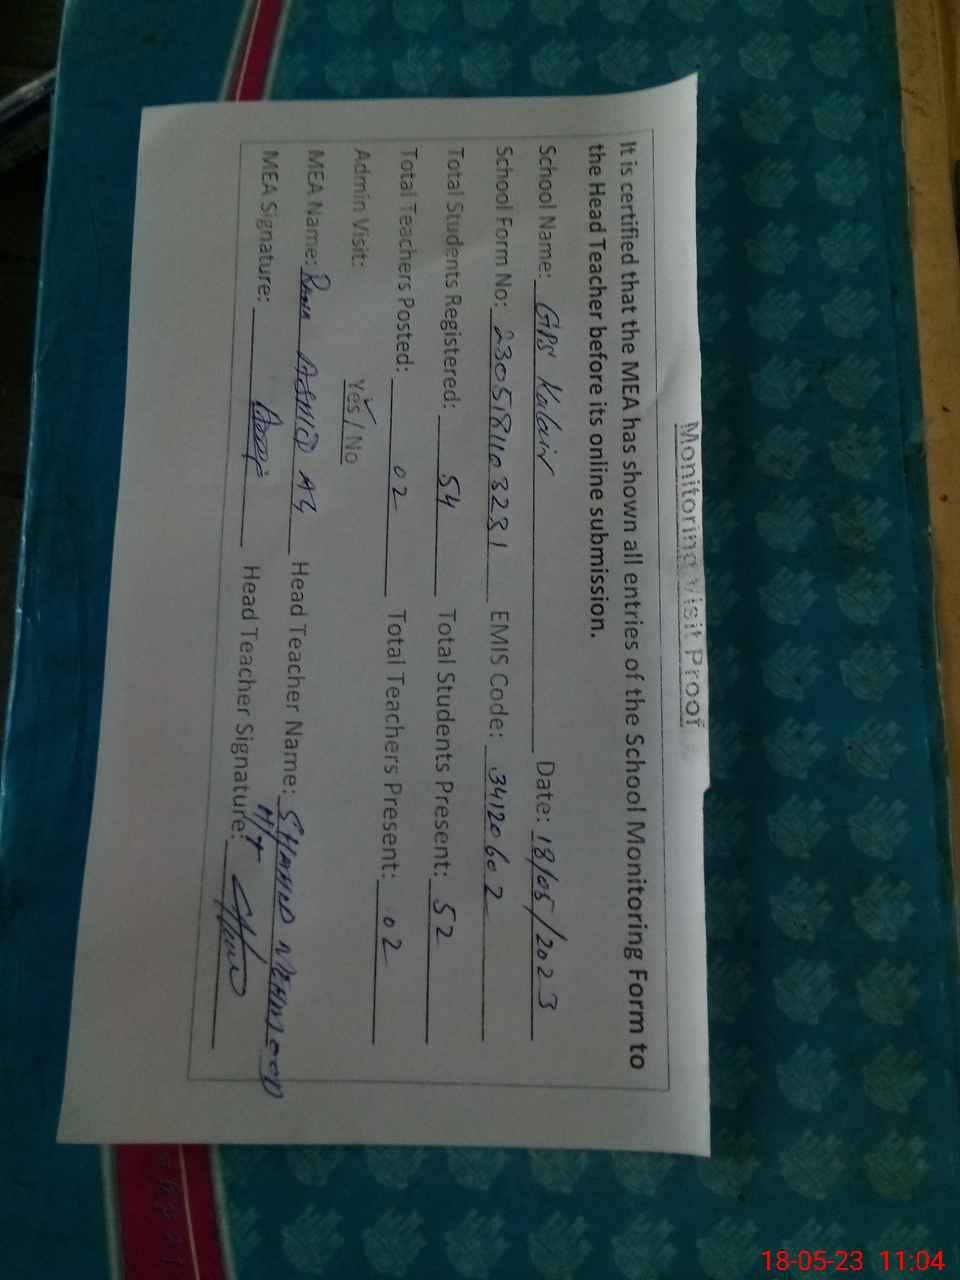 Monitoring Visit Proof
It is certified that the MEA has shown all entries of the School Monitoring Form to
the Head Teacher before its online submission.
School Name: GPS Kalair Date: 18/05/2023
School Form No: 230518110323 1 EMIS Code: 34120602
Total Students Registered: 54 Total Students Present: 52
Total Teachers Posted: 02 Total Teachers Present: 02
Admin Visit: Yes / No
MEA Name: Rana Head Teacher Name: SHAHID MEHMOOD
MEA Signature: Head Teacher Signature: H/T
18-05-23 11:04